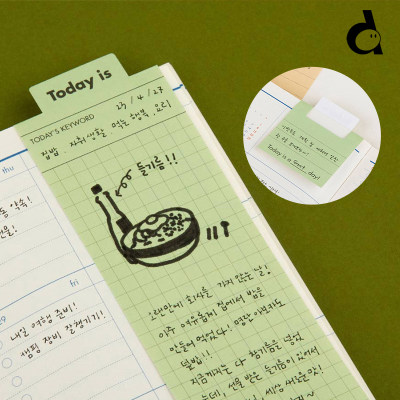 Today is
TODAY'S KEYWORD
23 / 4 / 27
집밥 자취생활 먹는 행복 요리
들기름!!
오랜만에 회사를 가지 않는 날!
아주 여유롭게 집에서 밥을
만들어 먹었다!
덮밥!!
지금까지는 다 참기름을 넣었
는데, 선물 받은 들기름이 있어서
thu
fri
29
내일 여행 준비!
캠핑 장비 잘챙기기!
Today is a Great day!
d